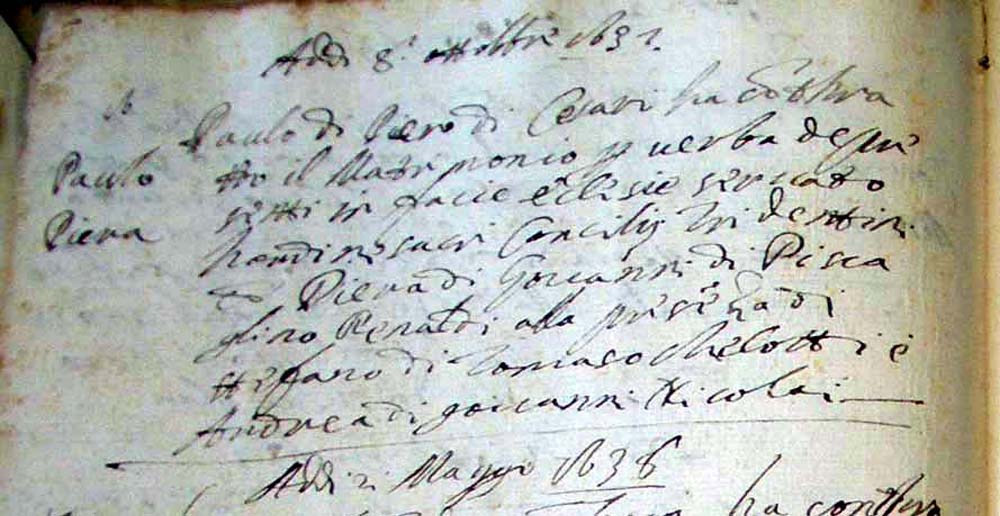 Addi 8 ottobre 1637
Paulo di Piero di Cesari ha Contra
Paulo
tto il Matrimonio p verba de pre
senti in facie eclesie servato
Piera
hordine sacri Concilij Tridentini
Piera di Giovanni di Pisca
glino Renaldi alla presenza di
stefano di Tomaso Melotti e
Andrea di giovanni Nicolai
Addi 21 Maggio 1638
ha contra